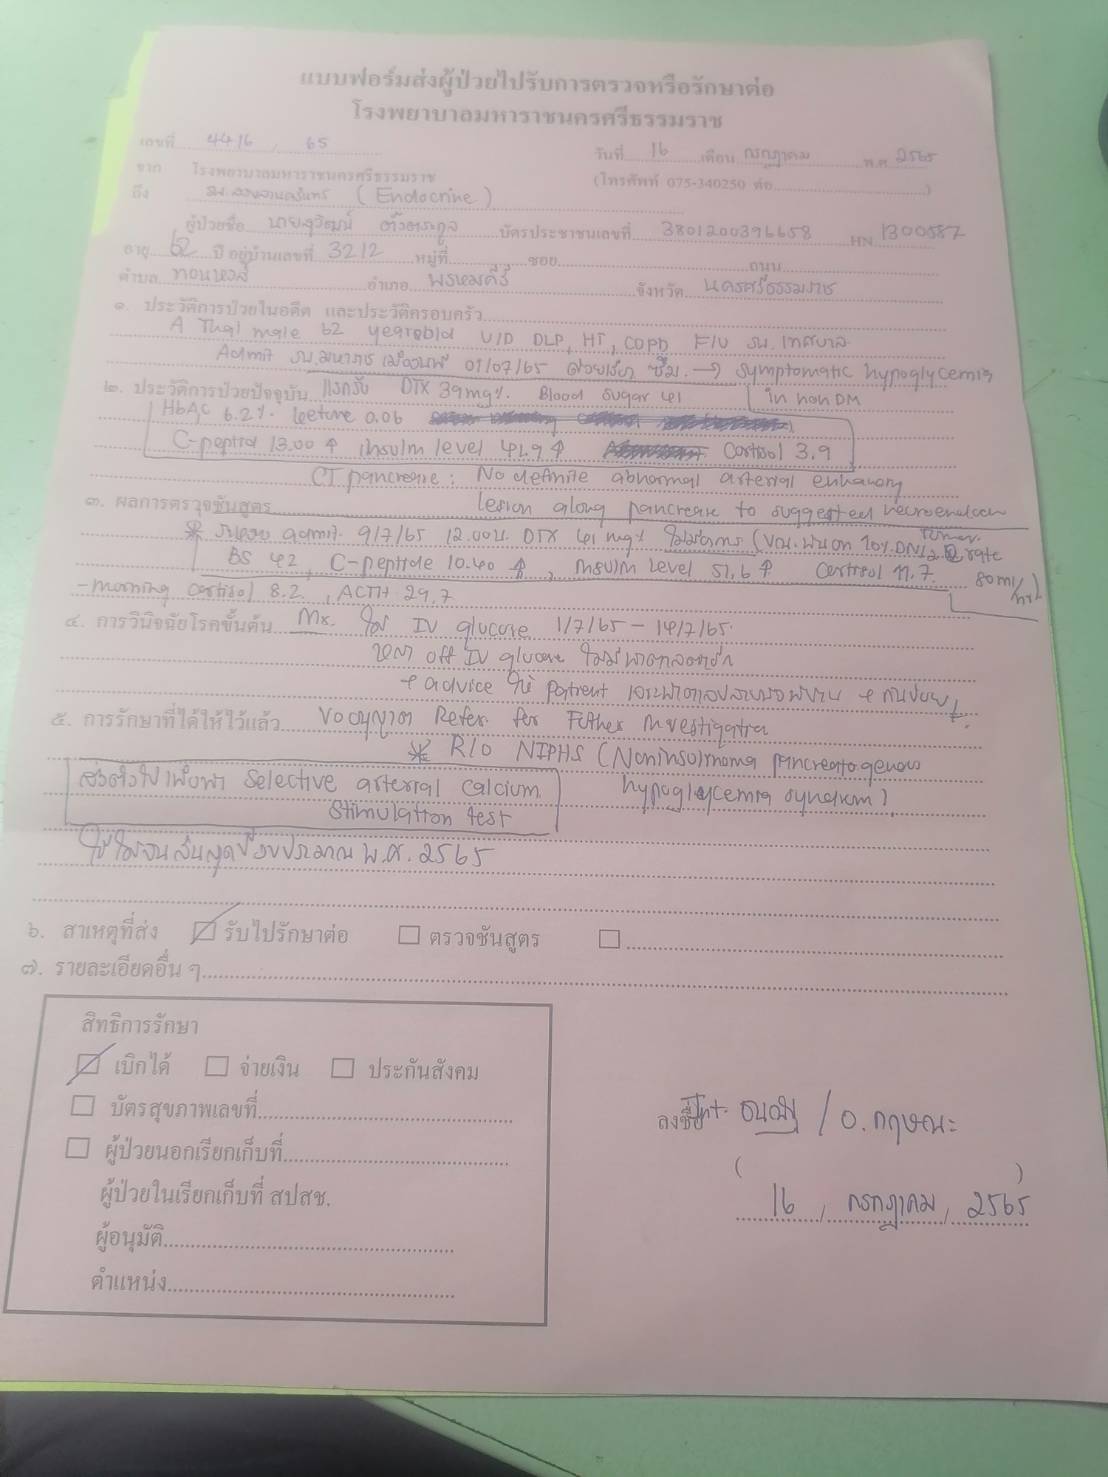 แบบฟอร์มส่งผู้ป่วยไปรับการตรวจหรือรักษาต่อ
โรงพยาบาลมหาราชนครศรีธรรมราช
เลขที่ 4416 / 65
วันที่ 16 เดือน กรกฎาคม พ.ศ. 2565
จาก โรงพยาบาลมหาราชนครศรีธรรมราช
(โทรศัพท์ 075-340250 ต่อ)
ถึง รพ.สงขลานครินทร์ (Endocrine)
ผู้ป่วยชื่อ นายสุวิฒน์ บัตรประชาชนเลขที่ 3801200396658 HN 1300587
อายุ 62 ปี อยู่บ้านเลขที่ 3212 หมู่ที่ ซอย ถนน
ตำบล ทอนหงส์ อำเภอ พรหมคีรี จังหวัด นครศรีธรรมราช
๑. ประวัติการป่วยในอดีต และประวัติครอบครัว
A Thai male 62 yearsold U/D DLP, HT, COPD F/U รพ. เทศบาล
Admit รพ.มหาราช 01/07/65 ด้วยเรื่อง ซึม. → symptomatic hypoglycemia
๒. ประวัติการป่วยปัจจุบัน แรกรับ DTX 39 mg%. Blood sugar 41 in non DM
HbAC 6.2%. ketone 0.06
C-peptide 13.00 ↑ insulin level 41.9 ↑ cortisol 3.9
CT pancrease : No definite abnormal arterial enhancing
๓. ผลการตรวจชันสูตร lesion along pancrease to suggested neuroendocrine tumor.
admit. 9/7/65 12.00น. DTX 41 mg% ไม่มีอาการ (ขณะ on 10% DN/2 rate 80 ml/hr)
BS 42, C-peptide 10.40 ↑, insulin level 51.6 ↑ cortisol 11.7
- morning cortisol 8.2, ACTH 29.7
๔. การวินิจฉัยโรคขั้นต้น Mx. ให้ IV glucose 1/7/65 - 14/7/65.
off IV glucose ไม่มีน้ำตาลตกอีก
+ advice ให้ patient เจาะน้ำตาลปลายนิ้วที่บ้าน + กินขนม
๕. การรักษาที่ได้ให้ไว้แล้ว ขออนุญาต Refer for Futher investigation
* R/O NIPHS (Noninsulinoma pancreatogenous
hypoglycemia syndrom)
ส่งตัวไปเพื่อทำ selective arterial calcium
stimulation test
ใช้ได้จนสิ้นสุดปีงบประมาณ พ.ศ. 2565
๖. สาเหตุที่ส่ง ☑ รับไปรักษาต่อ ☐ ตรวจชันสูตร ☐
๗. รายละเอียดอื่น ๆ
สิทธิการรักษา
☑ เบิกได้ ☐ จ่ายเงิน ☐ ประกันสังคม
☐ บัตรสุขภาพเลขที่
☐ ผู้ป่วยนอกเรียกเก็บที่
ผู้ป่วยในเรียกเก็บที่ สปสช.
ผู้อนุมัติ
ตำแหน่ง
ลงชื่อ Int. / อ. กฤษณะ
( )
16 / กรกฎาคม / 2565